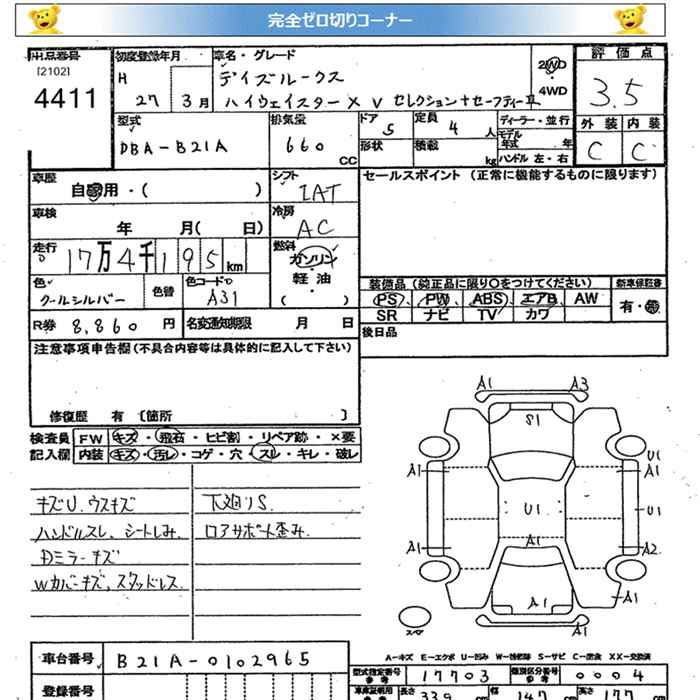 完全ゼロ切りコーナー
出品番号 初度登録年月 車名・グレード 評価点
[2102] H デイズルークス 2WD
4411 27 3月 ハイウェイスターX V セレクション+セーフティーⅡ 4WD 3.5
型式 排気量 ドア 定員 ディーラー・並行 外装 内装
DBA-B21A 660 CC 5 4人 モデル年式 年 C C
形状 積載 kg ハンドル 左・右
車歴 自家用・( ) シフト IAT セールスポイント(正常に機能するものに限ります)
車検 年 月( 日) 冷房 AC
走行 17万4千195km 燃料 ガソリン
軽油
( )
色 クールシルバー 色替 色コードNo A31 装備品(純正品に限り○をつけてください) 新車保証書
PS PW ABS エアB AW 有・無
R券 8,860円 名変通知期限 月 日 SR ナビ TV カワ
注意事項申告欄(不具合内容等は具体的に記入して下さい) 後日品
修復歴 有 〔箇所 〕
検査員 FW キズ・飛石・ヒビ割・リペア跡・×要
記入欄 内装 キズ・汚レ・コゲ・穴・スレ・キレ・破レ
キズU.ウスキズ 下廻りS
ハンドルスレ、シートしみ. ロアサポート歪み.
Dミラーキズ
Wカバーキズ,スタッドレス
A1 A3
S1
U1
A1 A1
U1 U1
A1 A1 A2
A1 A1
スペア
A1
A-キズ E-エクボ U-凹み W-補修跡 S-サビ C-腐食 XX-交換済
車台番号 B21A-0102965 型式指定番号 参考 17703 類別区分番号 参考 0004
登録番号 車庫証明用 参考 長さ 339 cm 幅 147 cm 高さ 177 cm